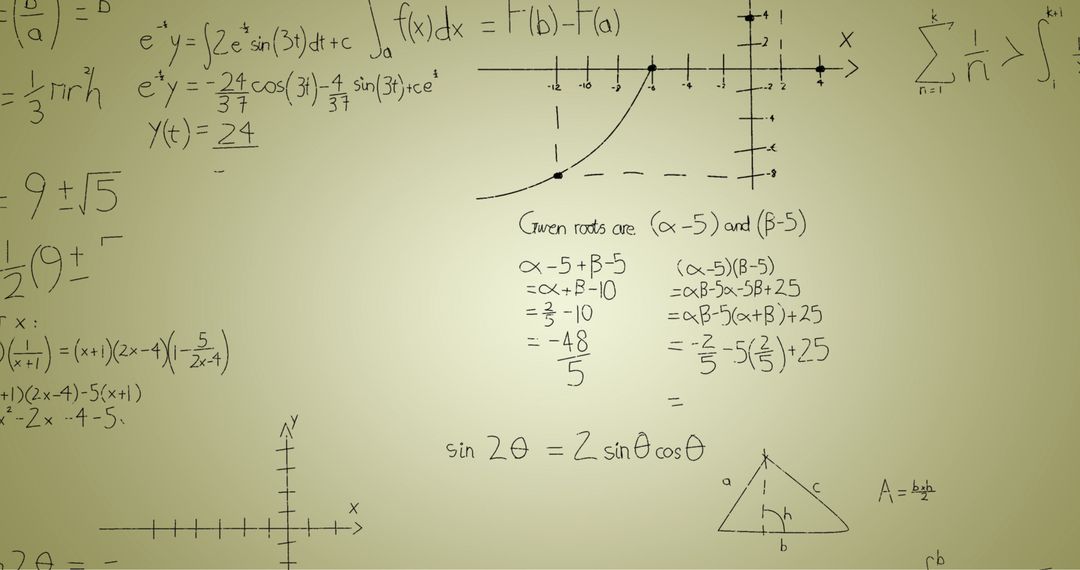 = (b/a) = b
= 1/3 πr²h
= 9 ± √5
1/2 (9 ±
x :
(1/(x+1)) = (x+1)(2x-4)(1 - 5/(2x-4))
+1)(2x-4)-5(x+1)
x²-2x -4-5
e y = ∫2e sin(3t)dt+c
e y = -24/37 cos(3t) - 4/37 sin(3t)+ce
y(t) = 24
∫a f(x)dx = F(b)-F(a)
X
-12 -10 -6 2 4
4
2
-2
-4
-8
k
∑ 1/n > ∫
n=1
k+1
Given roots are (α-5) and (β-5)
α-5+β-5
=α+β-10
= 2/5 -10
= -48/5
(α-5)(β-5)
=αβ-5α-5β+25
=αβ-5(α+β)+25
= -2/5 -5(2/5)+25
=
sin 2θ = 2 sinθ cosθ
y
x
a
c
h
b
A = b×h/2
2θ =